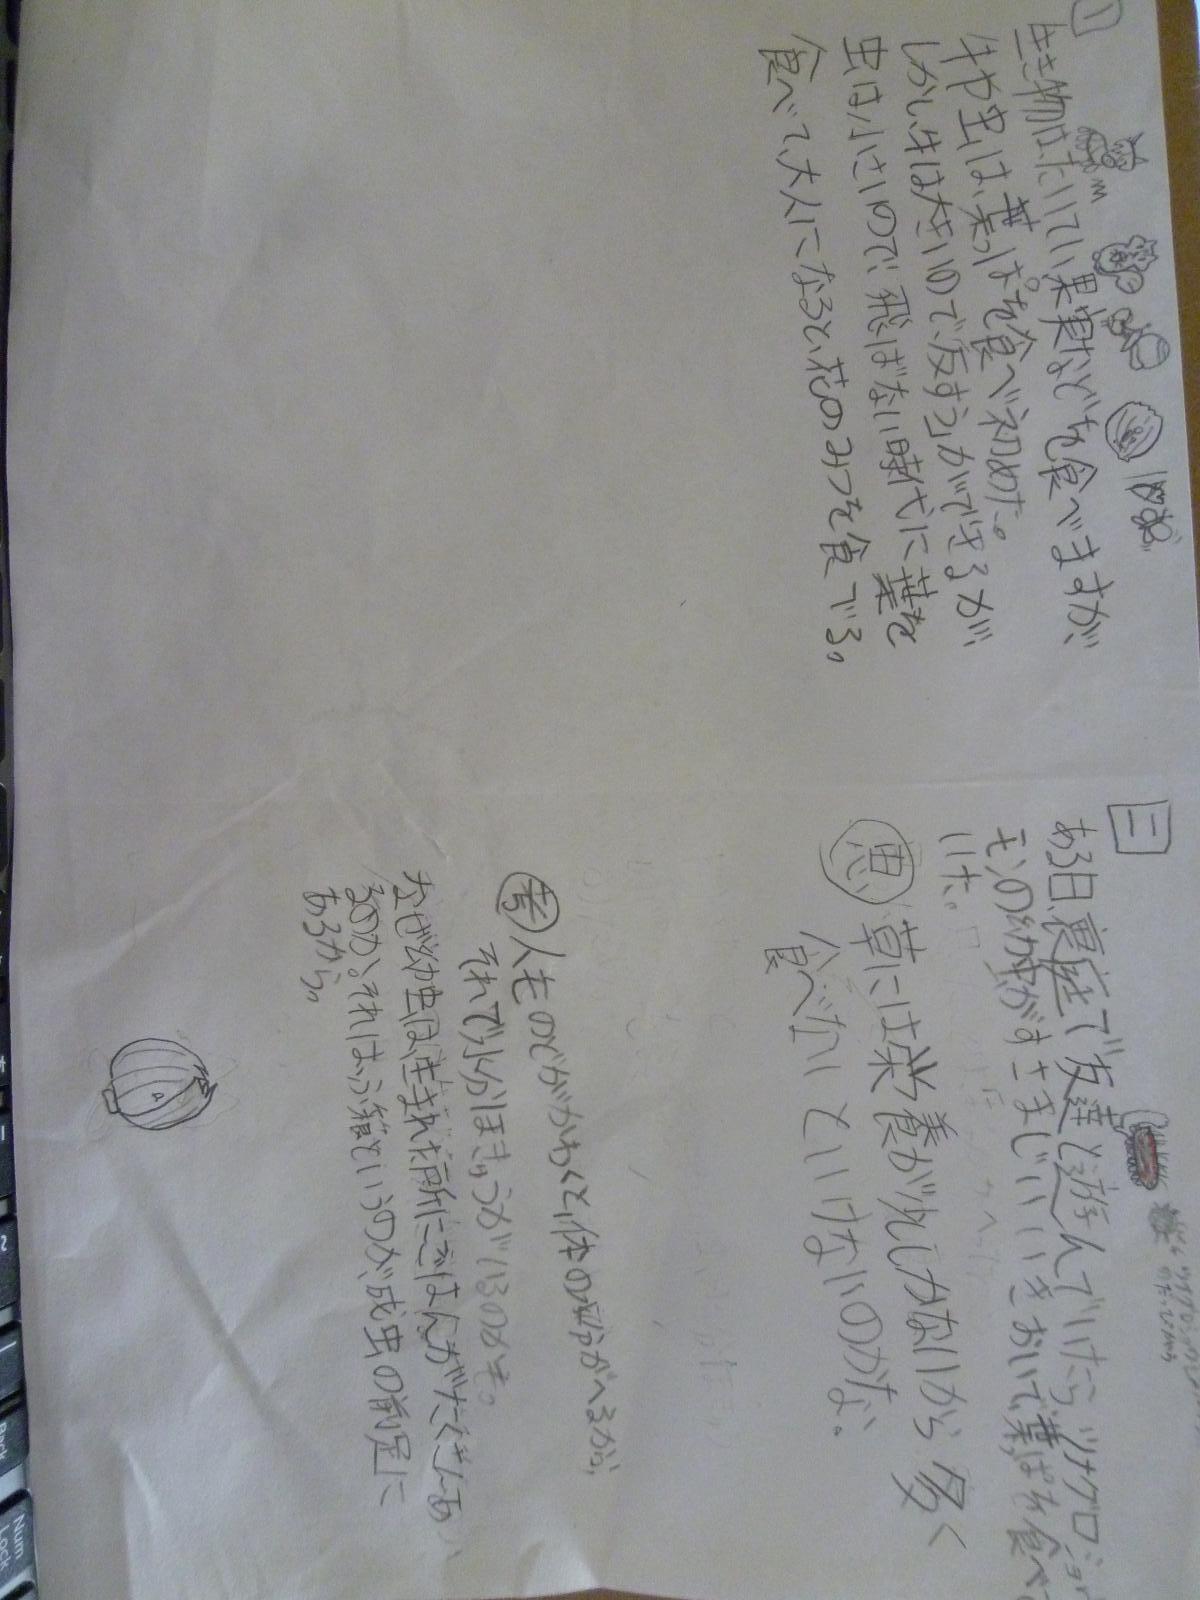 1
生き物は、たいてい果実などを食べますが、
牛や虫は、葉っぱを食べ初めた。
しかし、牛は大きいので、反すうができるが、
虫は小さいので、飛ばない時代に葉を
食べて、大人になると、花のみつを食でる。
二
ある日、裏庭で友達と遊んでいたら、ツマグロヒョウ
モンの幼虫がすさまじいいきおいで葉っぱを食べて
いた。
思 草には栄養が少ししかないから多く
食べないといけないのかな。
考 人ものどがかわくと、体の水分がへるが、
それで水分ほきゅうがいるのかも。
なぜ幼虫は、生まれた所にごはんがたくさんあ
るのか。それは、ふ節というのが、成虫の前足に
あるから。
Num
Lock
Back